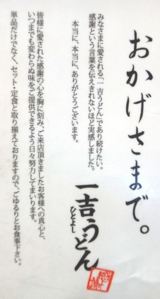 おかげさまで。
みなさまに愛された「一吉うどん」であり続けたい。
感謝という言葉を伝えきれないほど実感しました。
本当に、本当に、ありがとうございます。
一吉うどん
ひとよし
皆様に愛された感謝の心を胸に刻み、ご来店頂きましたお客様への真心と、
いつまでも変わらぬ味をご提供できるよう日々努力してまいります。
単品だけでなく、セット・定食と取り揃えておりますので、ごゆるりとお食事下さい。